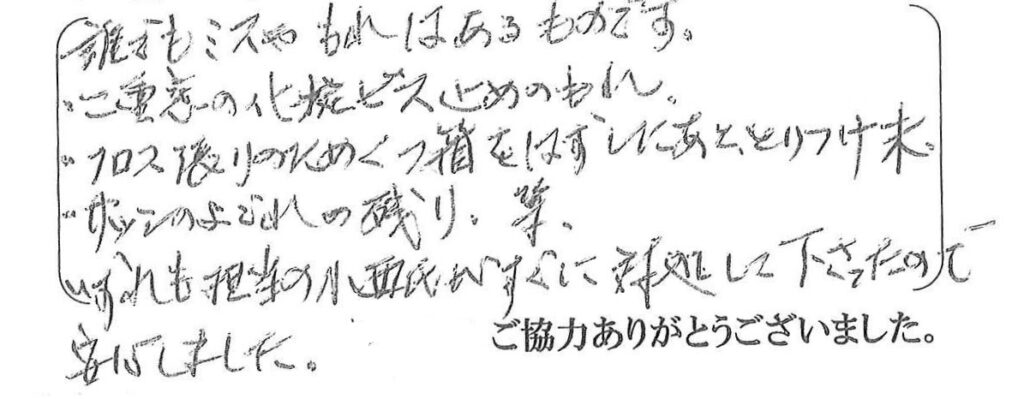 誰でもミスやもれはあるものです。
・二重窓の化粧ビス止めのもれ。
・フロス張りのためくつ箱をはずしたあと、とりつけ未。
・サッシのよごれの残り。等、
いずれも担当の小西氏がすぐに対処して下さったので
安心しました。
ご協力ありがとうございました。